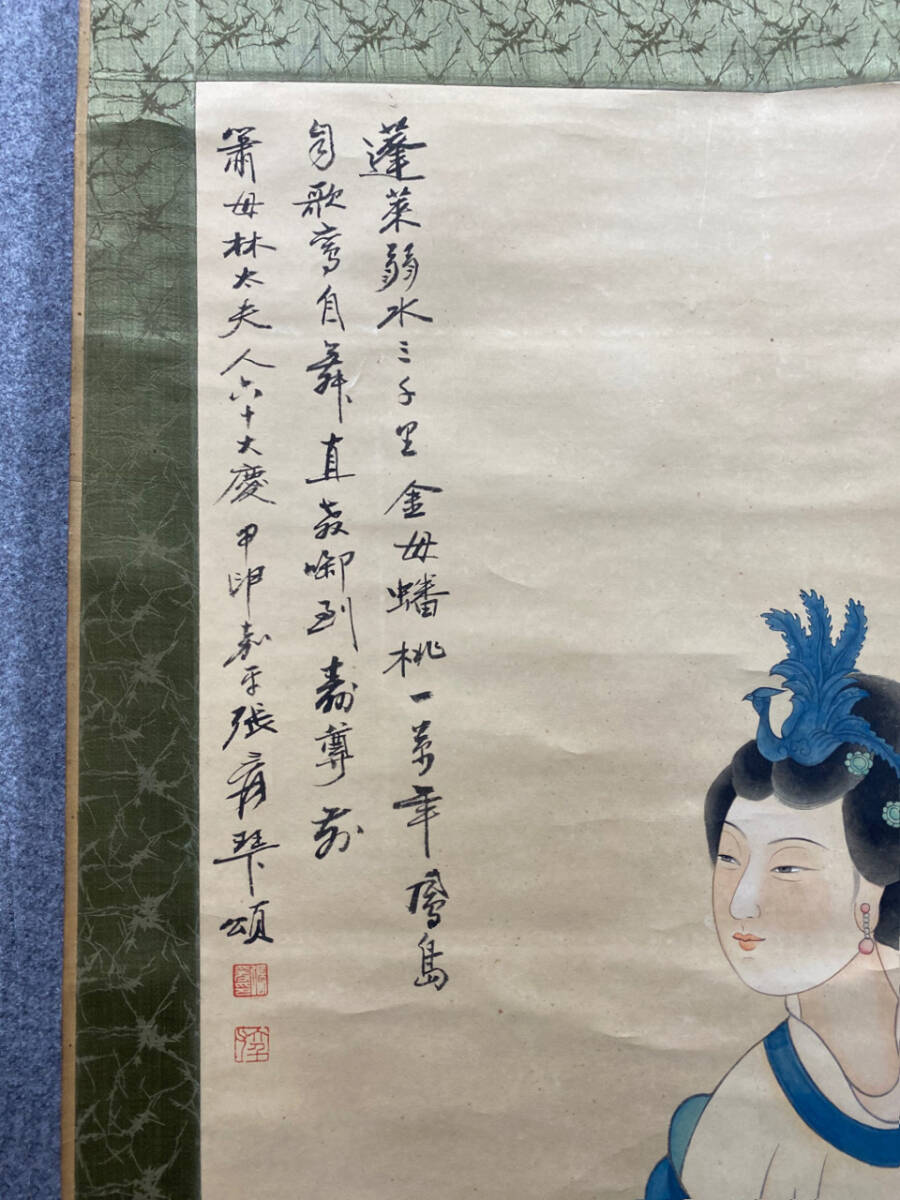 蓬萊弱水三千里金母蟠桃一萬年鳳島
自歌鸞自舞直教啣到壽尊前
蕭母林太夫人六十大慶甲申嘉平張爰拜頌